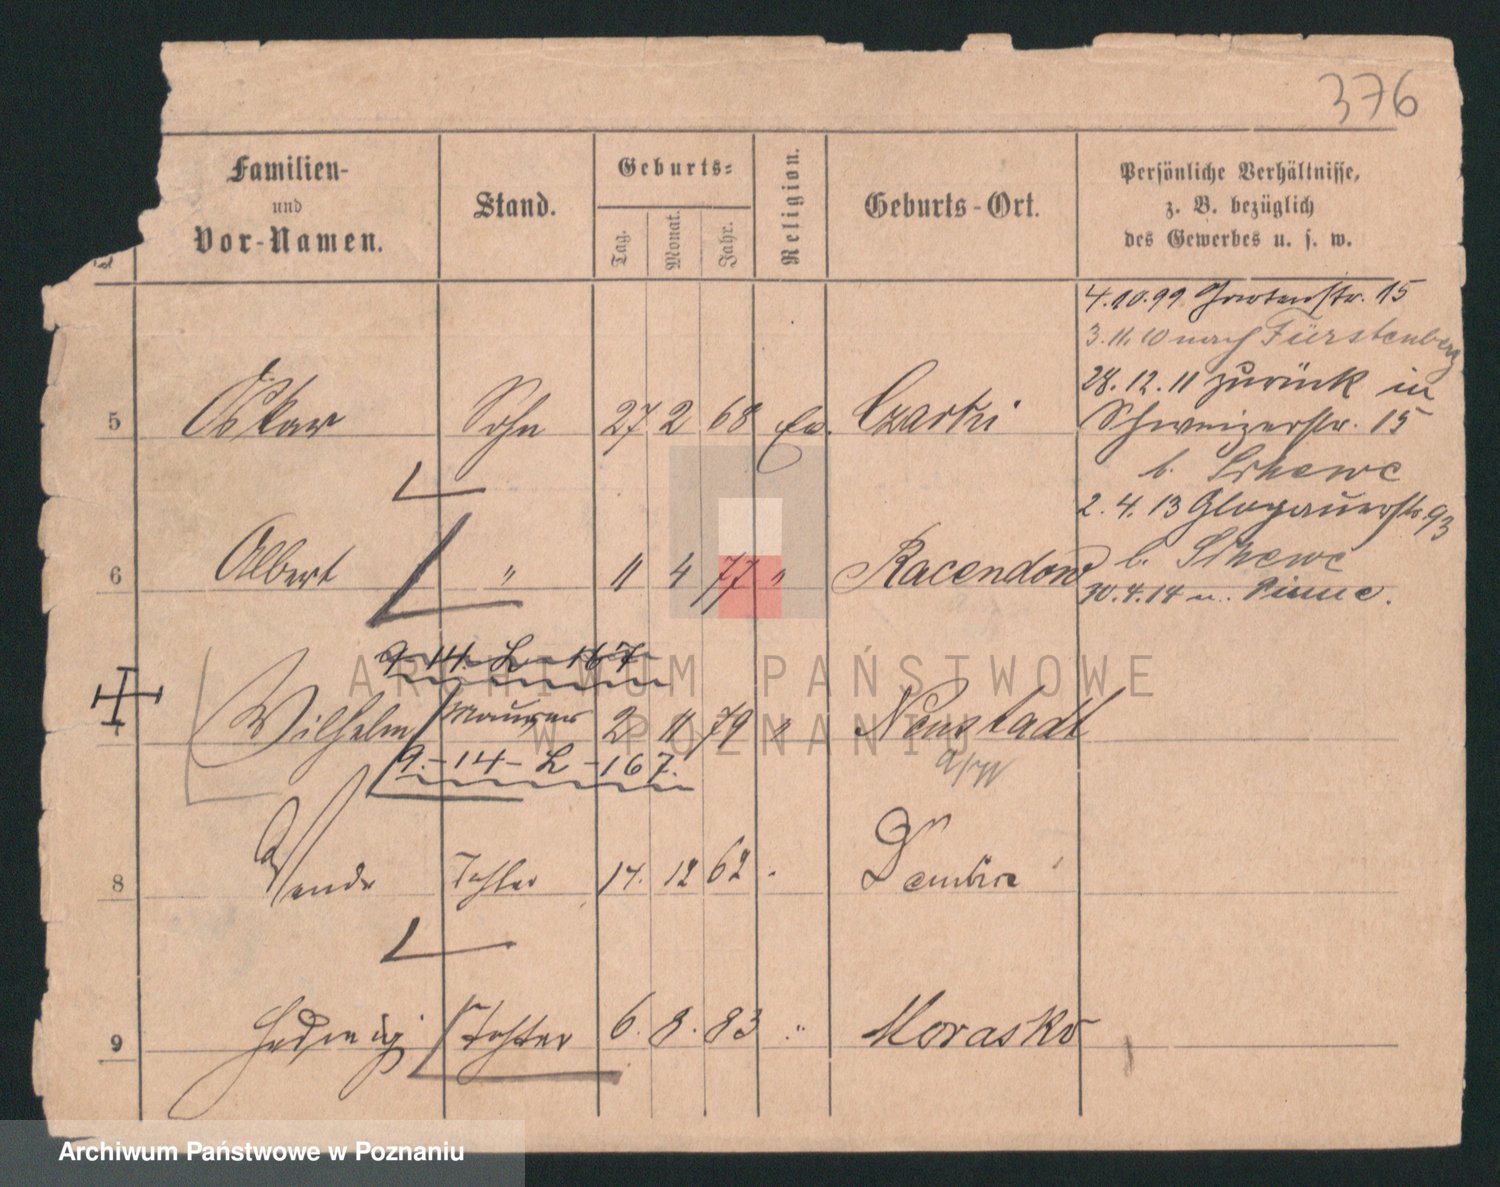 376
Familien-
und
Vor-Namen.
Stand.
Geburts-
Tag.
Monat.
Jahr.
Religion.
Geburts-Ort.
Persönliche Verhältnisse,
z. B. bezüglich
des Gewerbes u. s. w.
4.10.99 Gartenstr. 15
3.11.10 nach Fürstenberg
28.12.11 zurück in
5 Oskar Sohn 27 2 68 ev. Czarki Schweizerstr. 15
b.
2.4.13 Glogauerstr. 93
b.
6 Albert " 11 4 77 " Racendow
30.4.14 n. Pinne.
9-14-L-167
Wilhelm Maurer 2 11 79 " Neustadt
9.-14-L-167.
a/W
8 Tochter 14. 12 62 "
9 Hedwig Tochter 6. 8. 83 " Morasko
ARCHIWUM PAŃSTWOWE
W POZNANIU
Archiwum Państwowe w Poznaniu